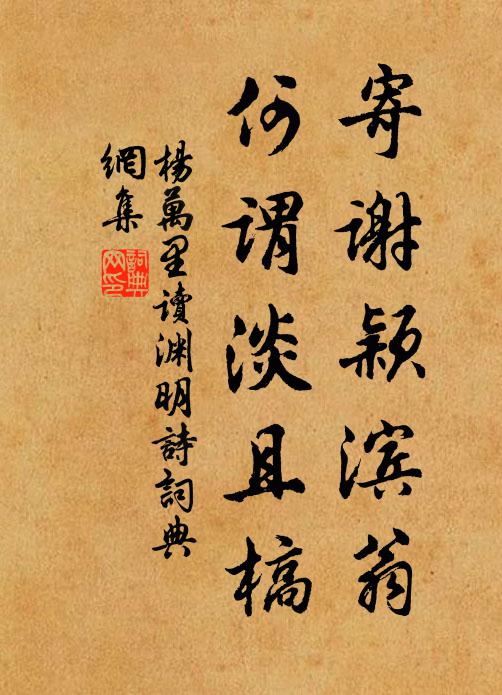 寄谢颍滨翁
何谓淡且槁
杨万里读渊明诗词典
網集
詞典網印